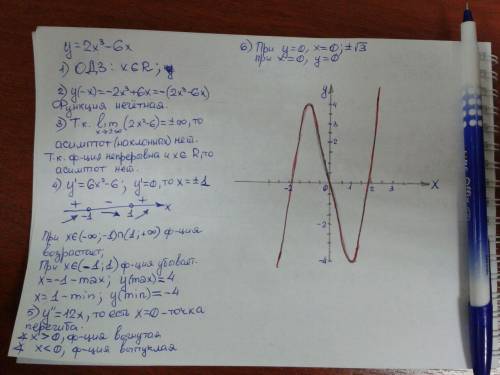 y=2x³-6x
1) ОДЗ: x∈R;
2) y(-x)=-2x³+6x=-(2x³-6x)
Функция нечётная.
3) Т.к. lim (2x²-6)=±∞, то
x→±∞
асимптот (наклонных) нет.
Т.к. ф-ция непрерывна и x∈R, то
асимптот нет.
4) y'=6x²-6; y'=0, то x=±1
+ - +
-1 1 x
При x∈(-∞;-1)∩(1,+∞) ф-ция
возрастает;
При x∈(-1;1) ф-ция убывает.
x=-1-max; y(max)=4
x=1-min; y(min)=-4
5) y''=12x, то есть x=0-точка
перегиба.
x>0, ф-ция вогнутая
x<0, ф-ция выпуклая
6) При y=0, x=0;±√3
при x=0, y=0
y
4
2
-2
0
2
X
-2
-4